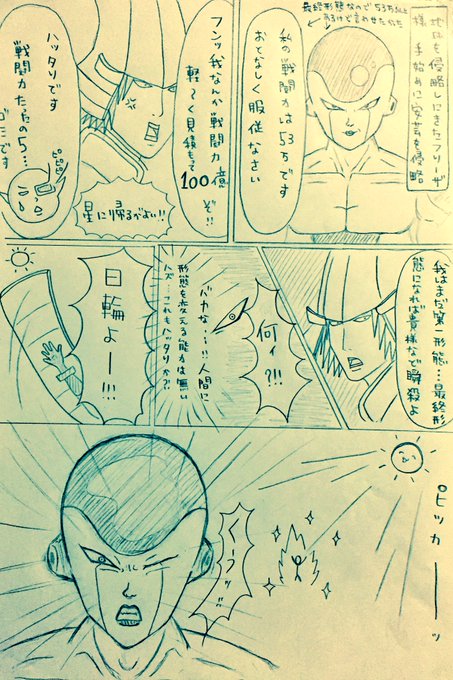 地球を侵略しにきたフリーザ
様 手始めに安芸を侵略
最終形態なので53万以上
あるけど言わせたかった
私の戦闘力は53万です
おとなしく服従なさい
フンッ我なんか戦闘力
軽〜く見積もって
100億
ぞ!!
星に帰るがよい!!
ハッタリです
戦闘力たったの5…
ゴミです
ピピピ
我はまだ第一形態…最終形
態になれば貴様など瞬殺よ
何ィ?!!
バカな…!! 人間に
形態を変える能力は無い
ハズ…これもハッタリか?!
日輪よー!!!
ピッカーーッ
くーフッ!!